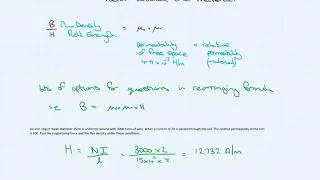 B Flux Density = μ₀ × μᵣ
H Field Strength
permeability of free space 4π × 10⁻⁷ H/m
relative permeability (material)
lots of options for questions in rearranging formula
i.e B = μ₀ μᵣ H
An iron ring of mean diameter 15cm is uniformly wound with 3000 turns of wire. When a current of 2A is passed through the coil, the relative permeability of the iron
is 500. Find the magnetising force and the flux density under these conditions.
H = NI / l = 3000 × 2 / 15×10⁻² × π = 12732 A/m